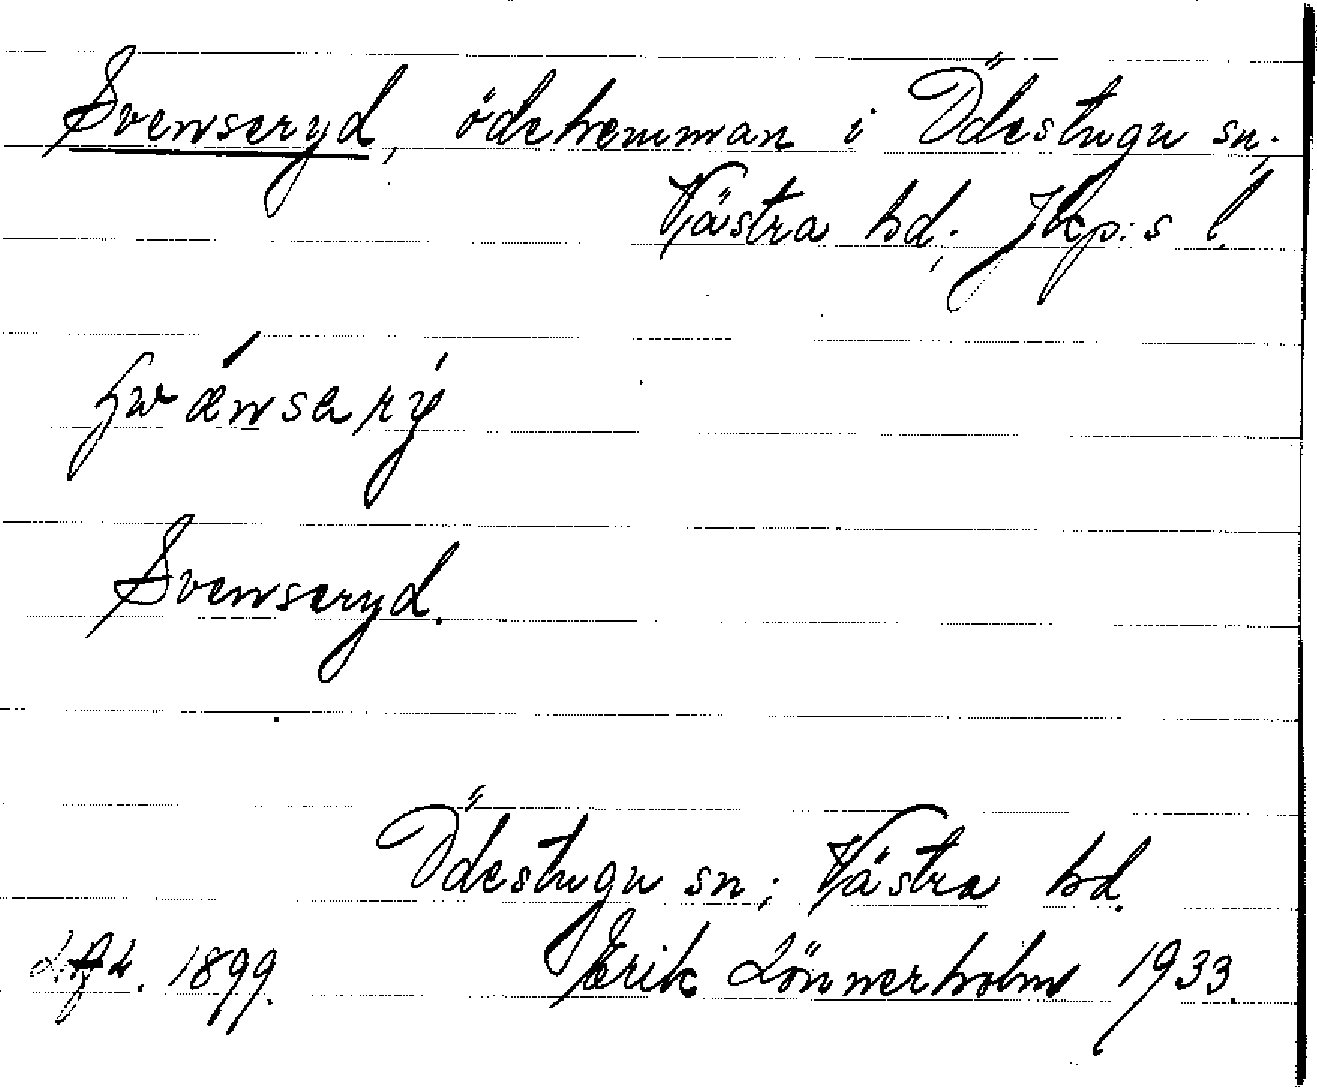 Svenseryd, ödehemman i Ödestugu sn;
Västra hd; Jkp:s l.
Svenseryd.
Ödestugu sn; Västra hd.
1899. Erik Lönnerholm 1933.